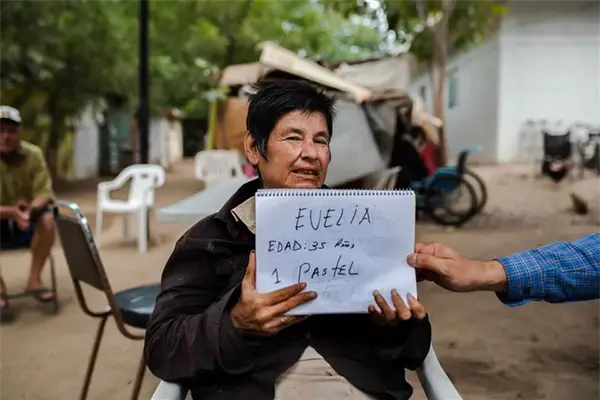 EVELIA
EDAD: 35 Años
1 PASTEL